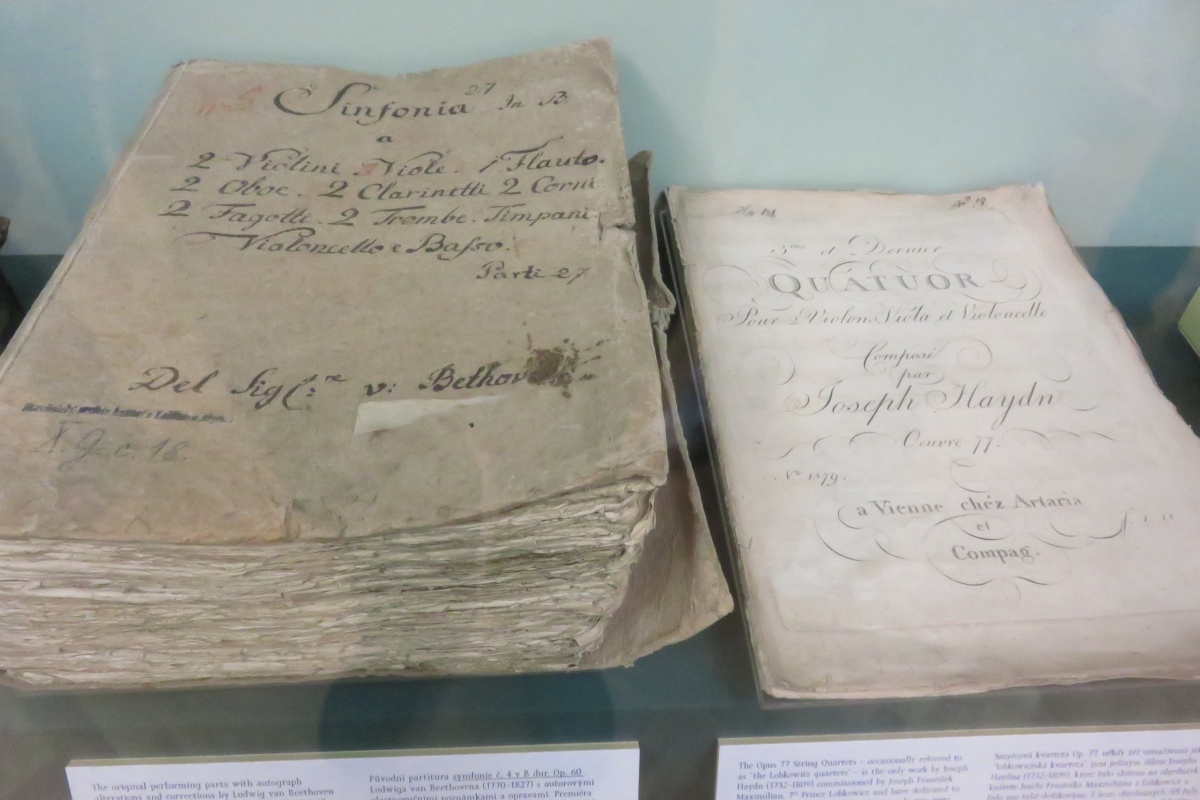 Sinfonia 27 In B.
a
2 Violini Viole. 1 Flauto.
2 Oboe. 2 Clarinetti 2 Corni
2 Fagotti. 2 Trombe. Timpani
Violoncello e Basso.
Parti 27
Del Sig:re v: Bethov
X. G. c. 18.
No 18.
3me et Dernier
QUATUOR
Pour 2 Violons, Viola et Violoncelle
Composé
par
Joseph Haydn
Oeuvre 77.
No 1879.
a Vienne chéz Artaria
et
Compag.
The original performing parts with autograph
alterations and corrections by Ludwig van Beethoven
Původní partitura symfonie č. 4 v B dur, Op. 60
Ludwiga van Beethovena (1770-1827) s autorovými
poznámkami a opravami. Premiéra
The Opus 77 String Quartets – occasionally referred to
as 'the Lobkowitz quartets' – is the only work by Joseph
Haydn (1732-1809) commissioned by Joseph František
Maximilian, 7th Prince Lobkowicz and later dedicated to
Smyčcová kvarteta Op. 77, někdy též označovaná
'lobkowiczká kvarteta', jsou jediným dílem Josepha
Haydna (1732-1809), které bylo složeno na objednávku
knížete Josefa Františka Maximiliána z Lobkowicz a